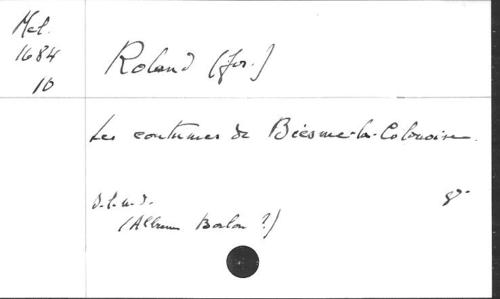 Mel.
1684
10
Roland (Jos.)
Les coutumes de Biesme-la-Colonoise.
s.l.n.d. 8°
(Album Borlon ?)